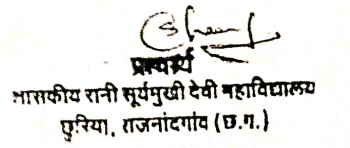 प्राचार्य
शासकीय रानी सूर्यमुखी देवी महाविद्यालय
छुरिया, राजनांदगांव (छ.ग.)